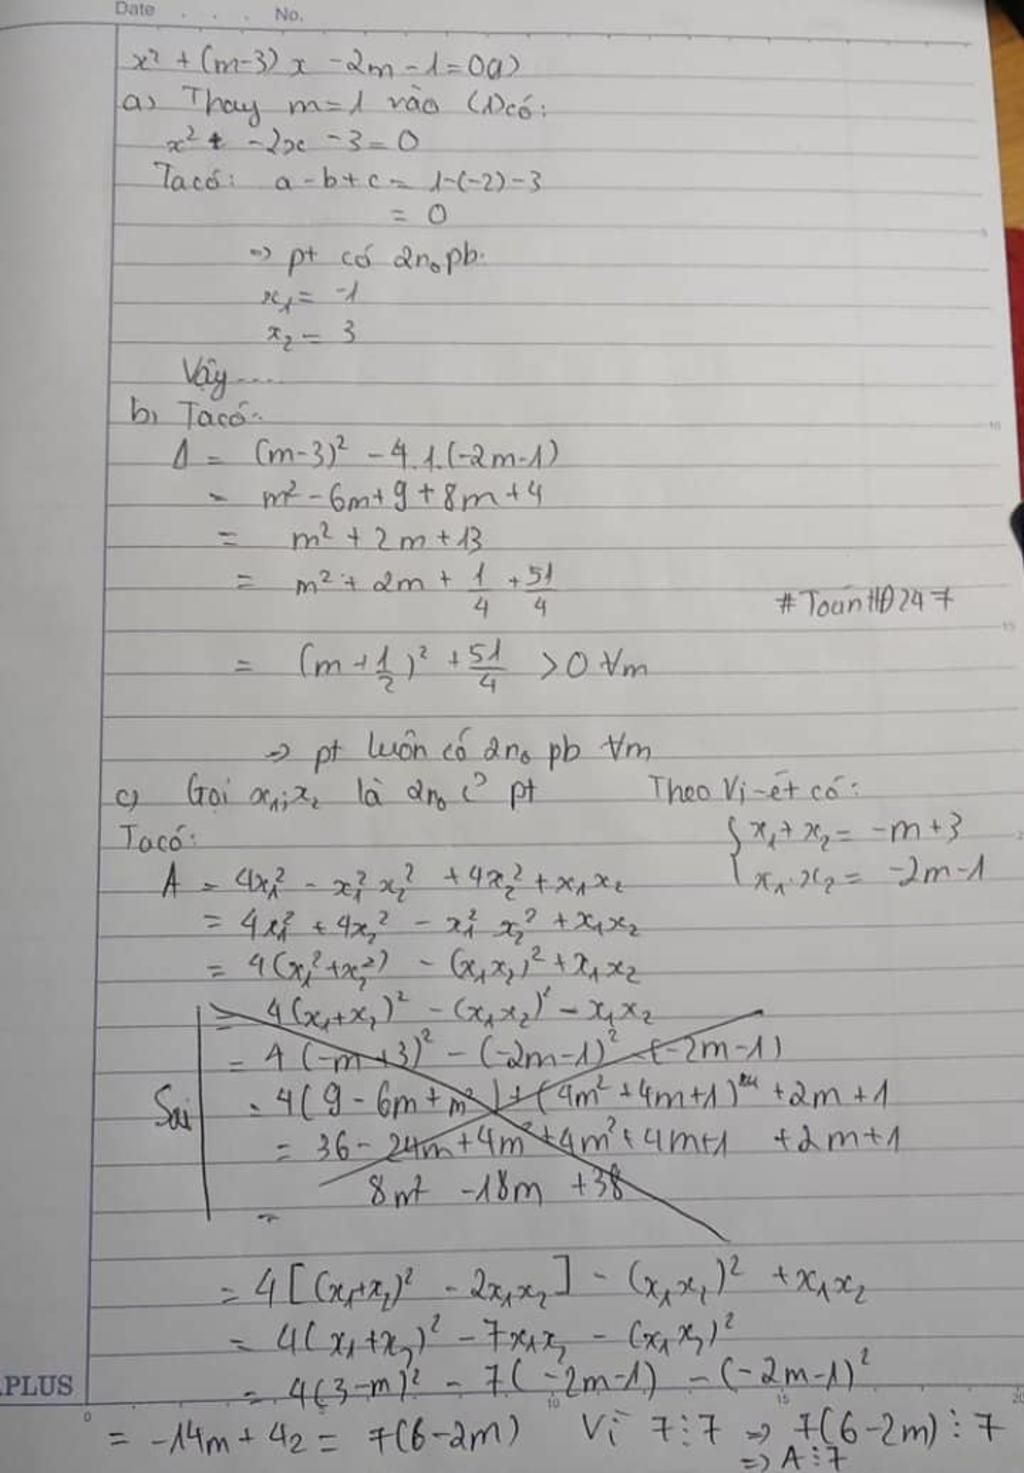 Date . . . No.
x² + (m-3) x - 2m - 1 = 0 (1)
a) Thay m=1 vào (1) có:
x² + -2x - 3 = 0
Ta có: a - b + c = 1-(-2)-3
= 0
=> pt có 2n₀ pb.
x₁ = -1
x₂ = 3
Vậy....
b, Ta có:
Δ = (m-3)² - 4.1.(-2m-1)
= m² - 6m + 9 + 8m + 4
= m² + 2m + 13
= m² + 2m + 1/4 + 51/4
#ToánHĐ247
= (m + 1/2)² + 51/4 > 0 ∀m
=> pt luôn có 2n₀ pb ∀m
c) Gọi x₁; x₂ là 2n₀ c² pt Theo Vi-ét có:
Ta có: { x₁ + x₂ = -m + 3
x₁.x₂ = -2m - 1
A = 4x₁² - x₁² x₂² + 4x₂² + x₁x₂
= 4x₁² + 4x₂² - x₁² x₂² + x₁x₂
= 4(x₁² + x₂²) - (x₁x₂)² + x₁x₂
= 4(x₁+x₂)² - (x₁x₂)² - x₁x₂
= 4(-m+3)² - (-2m-1)² - (-2m-1)
Sai = 4(9 - 6m + m²) + (4m² + 4m + 1) + 2m + 1
= 36 - 24m + 4m² + 4m² + 4m + 1 + 2m + 1
= 8m² - 18m + 38
= 4[(x₁+x₂)² - 2x₁x₂] - (x₁x₂)² + x₁x₂
= 4(x₁+x₂)² - 7x₁x₂ - (x₁x₂)²
PLUS = 4(3-m)² - 7(-2m-1) - (-2m-1)²
0 10 15 20
= -14m + 42 = 7(6-2m) Vì 7⋮7 => 7(6-2m)⋮7
=> A⋮7